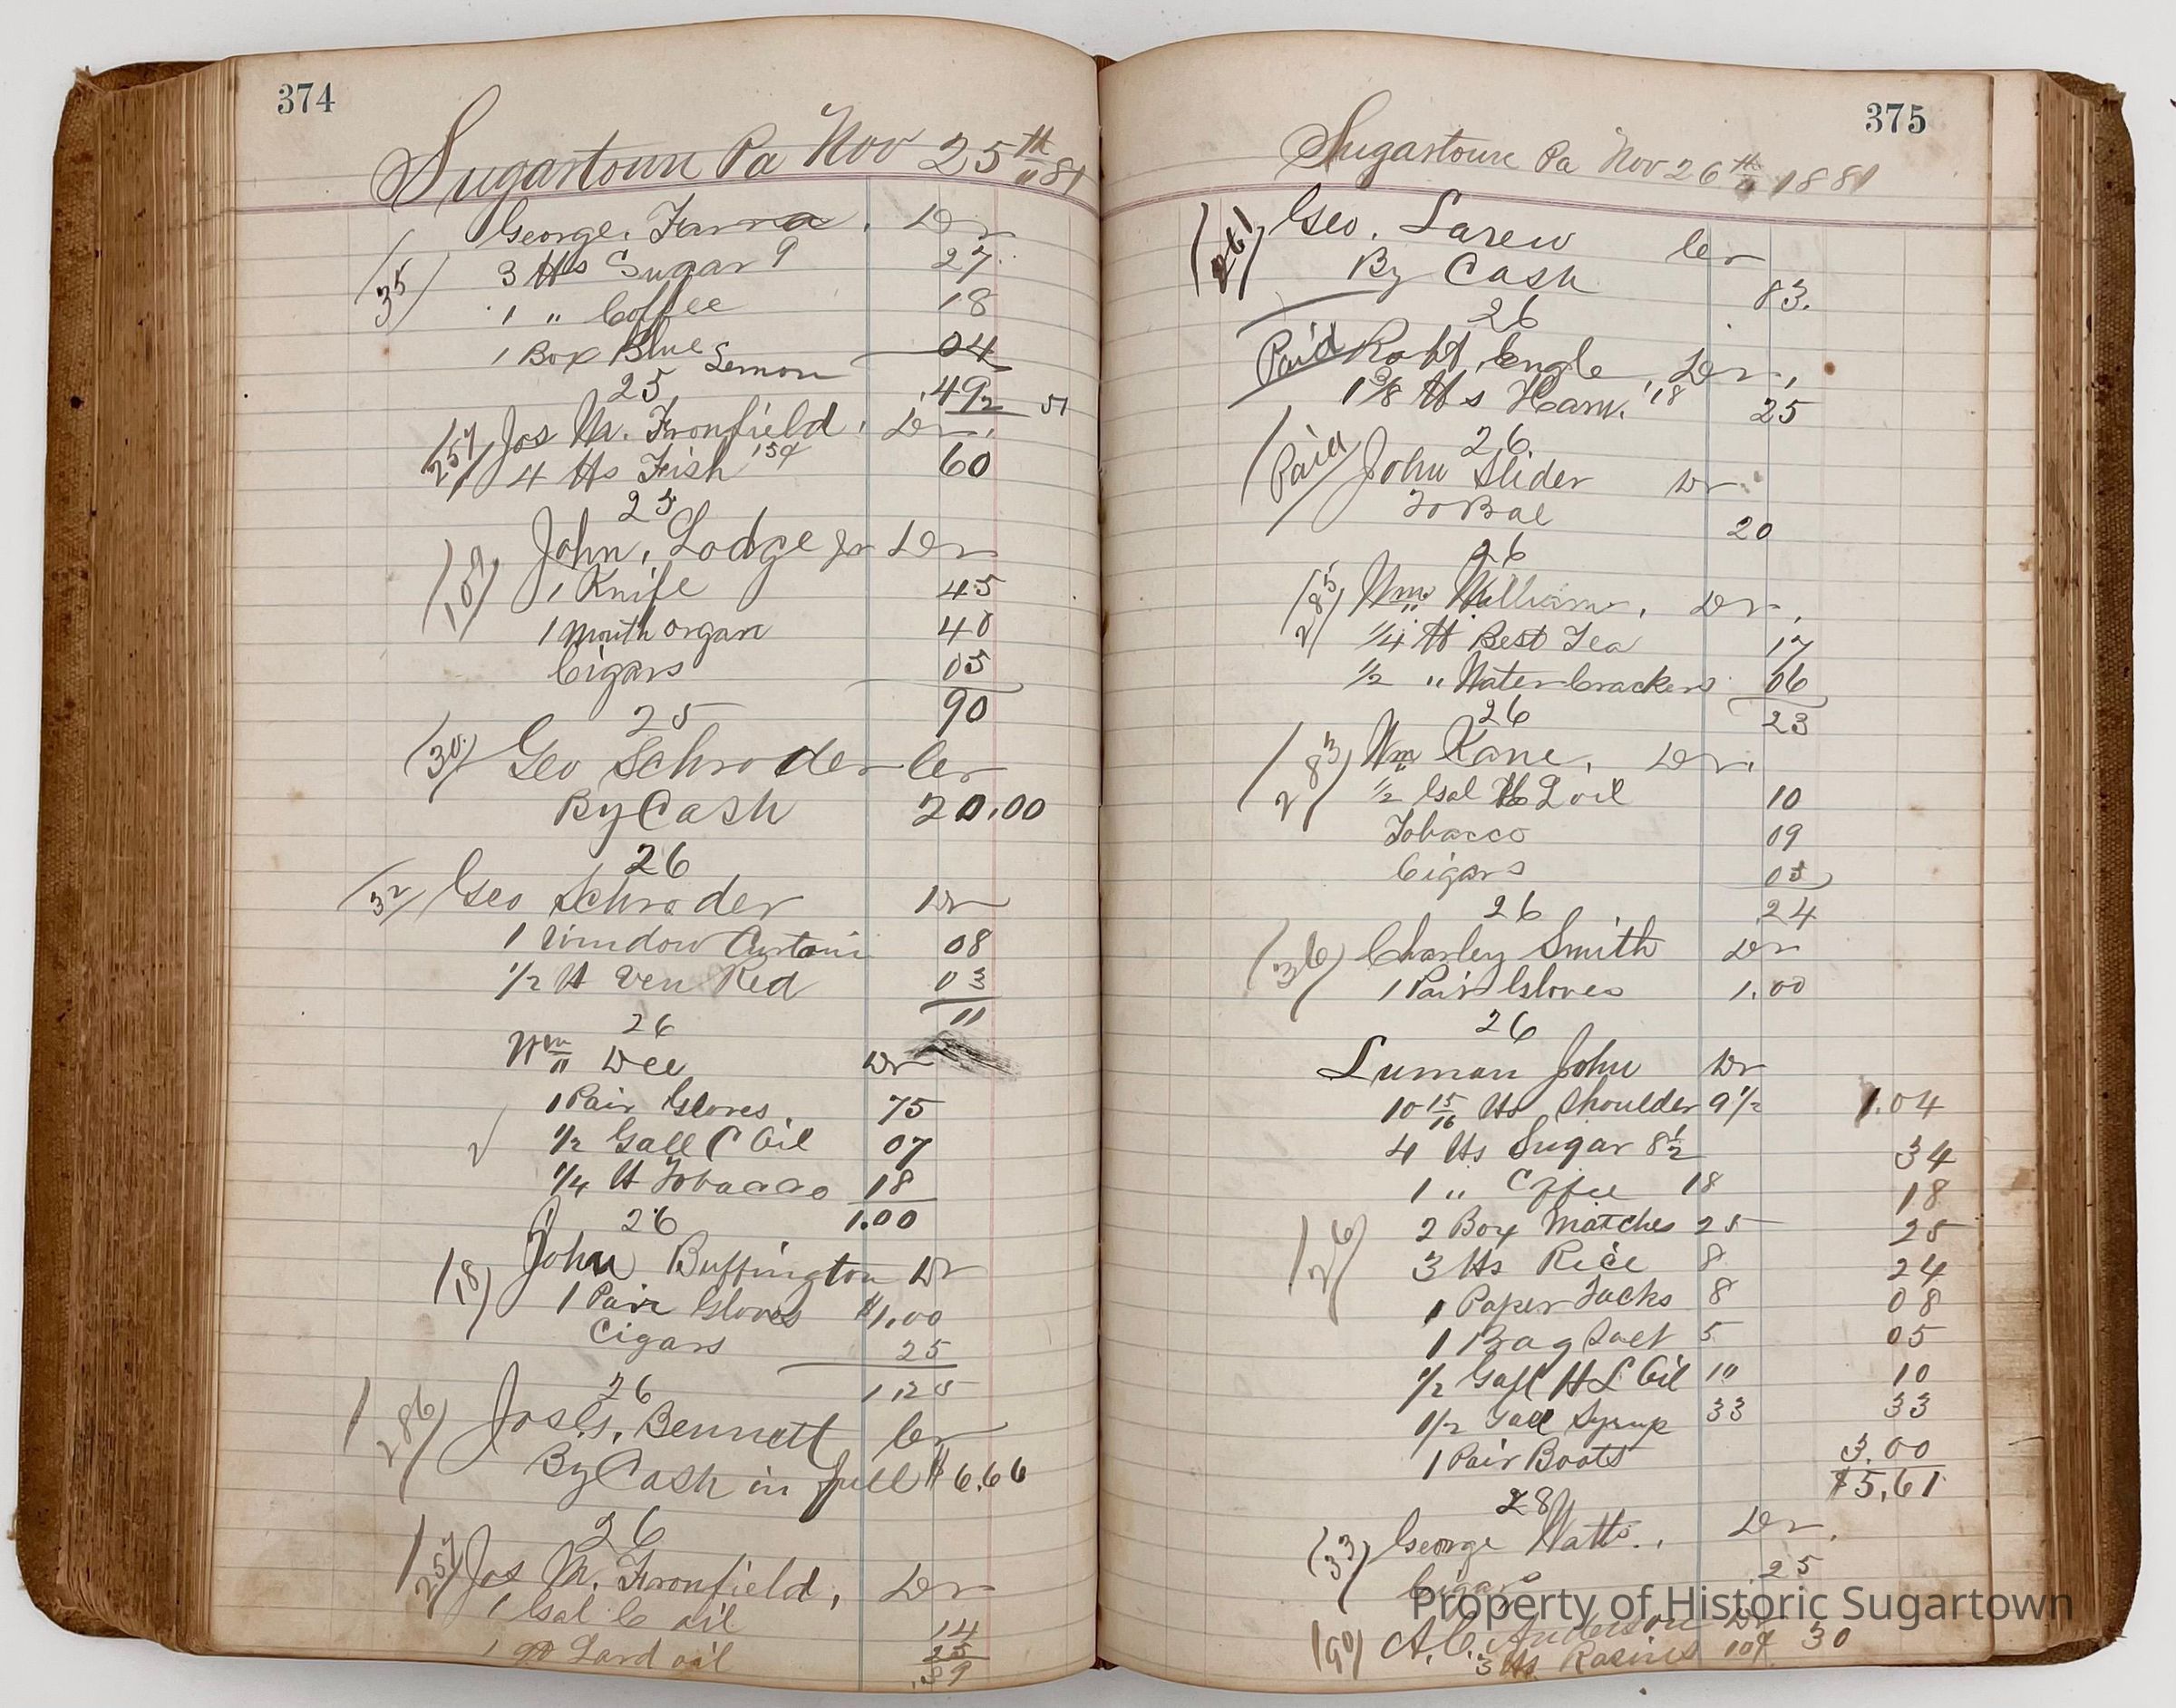 374
Sugartown Pa Nov 25th 81
George. Farra. Dr
35 3 lbs Sugar 9 27
1 " Coffee 18
1 Box Blue 04
Lemon
25 49 2 51
257 Jos M. Fronfield. Dr.
4 lbs Fish 15¢ 60
25
109 John. Lodge Jr Dr
1 Knife 45
1 Mouth organ 40
Cigars 05
25 90
30 Geo Schroder Cr
By Cash 20.00
26
32 Geo Schroder Dr
1 Window Curtain 08
1/2 lb Ven Red 03
26 11
Wm Dee Dr
1 Pair Gloves. 75
1/2 Gall C Oil 07
1/4 lb Tobacco 18
26 1.00
18 John Buffington Dr
1 Pair Gloves $1.00
Cigars 25
26 125
286 Jos. G. Bennett Cr
By Cash in full $6.66
26
257 Jos M. Fronfield, Dr
1 Gal C oil 14
1 qt Lard oil 25
.39
375
Sugartown Pa Nov 26th 1881
261 Geo. Larew Cr
By Cash 83.
26
Paid Robt Engle Dr.
1 3/8 lbs Ham. 18 25
26
Paid John Slider Dr
To Bal 20
26
285 Wm William. Dr.
1/4 lb Best Tea 17
1/2 " Water Crackers 06
26 23
283 Wm Kane. Dr.
1/2 Gal H L oil 10
Tobacco 09
Cigars 05
26 24
36 Charley Smith Dr
1 Pair Gloves 1.00
26
Luman John Dr
10 15/16 lbs Shoulder 9 1/2 1.04
4 lbs Sugar 8 1/2 34
1 " Coffee 18 18
26 2 Box Matches 25 25
3 lbs Rice 8 24
1 Paper Tacks 8 08
1 Bag Salt 5 05
1/2 Gall H L Oil 10 10
1/2 Gall Syrup 33 33
1 Pair Boots 3.00
$5,61
28
33 George Watts. Dr.
Cigars 25
Property of Historic Sugartown
A. C. Anderson Dr
3 lbs Rasins 10¢ 30